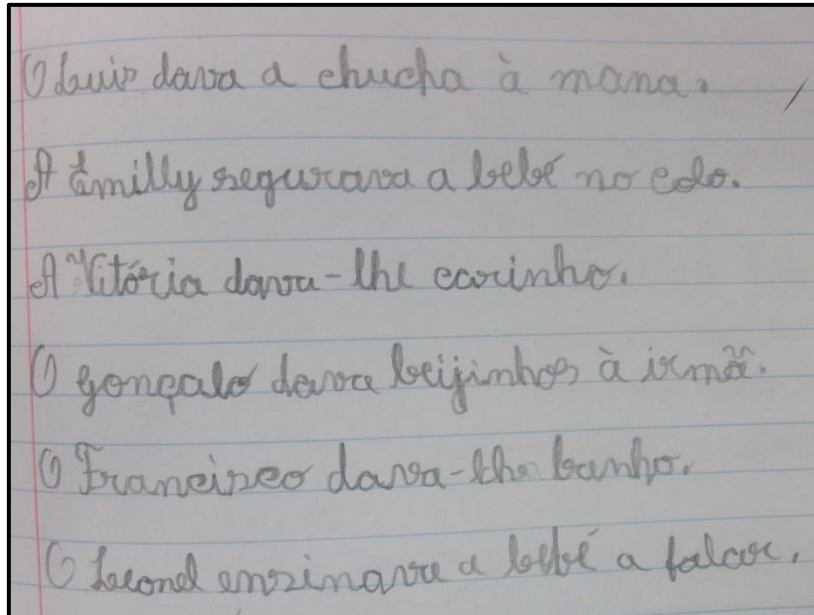 O Luis dava a chucha à mana.
A Emilly segurava a bebé no colo.
A Vitória dava-lhe carinho.
O Gonçalo dava beijinhos à irmã.
O Francisco dava-lhe banho.
O Leonel ensinava a bebé a falar.